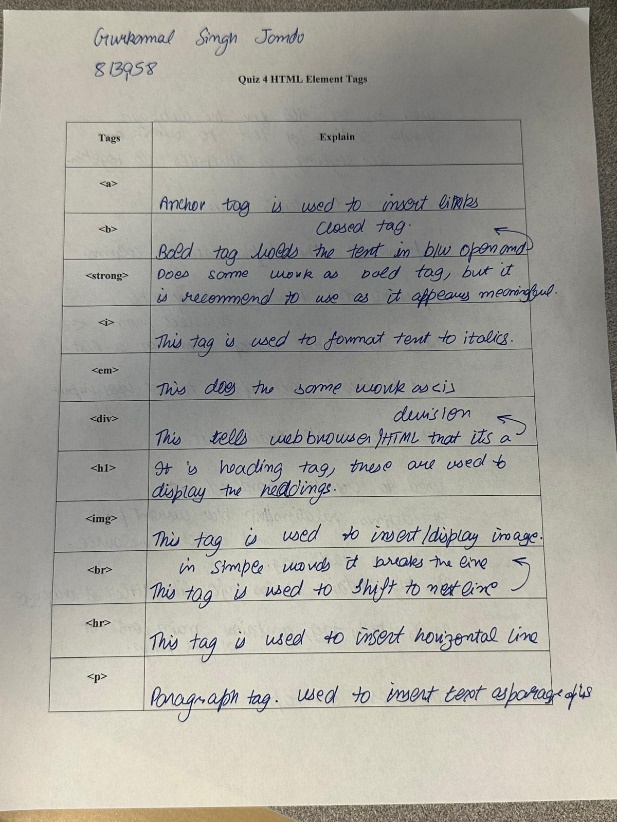 Gurkomal Singh Jomdo
813958
Quiz 4 HTML Element Tags
Tags Explain
<a> Anchor tag is used to insert links
<b> Bold tag holds the text in b/w open and
closed tag.
<strong> Does some work as bold tag, but it
is recommend to use as it appears meaningful.
<i> This tag is used to format text to italics.
<em> This does the some work as <i>
<div> This tells webbrowser/HTML that its a
division
<h1> It is heading tag, these are used to
display the heddings.
<img> This tag is used to insert/display image.
<br> This tag is used to shift to next line
in simple words it breaks the line
<hr> This tag is used to insert horizontal line
<p> Paragraph tag. used to insert text as paragraphs